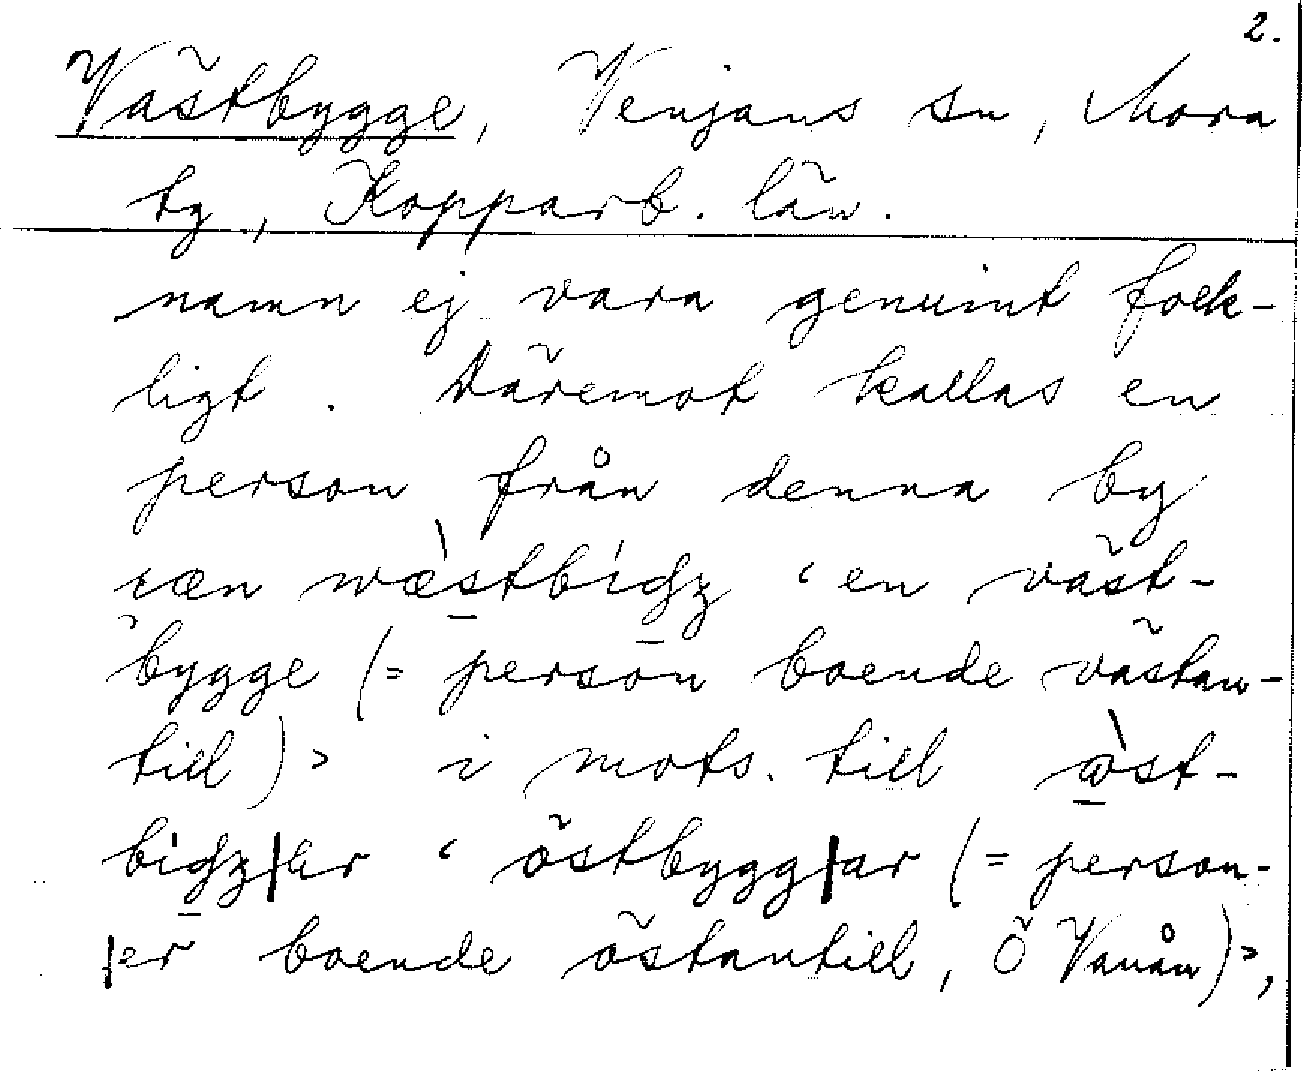 2.
Västbygge, Venjans sn, Mora
tg, Kopparb. län.
namn ej vara genuint folk-
ligt. Däremot kallas en
person från denna by
ɩæn wæ̀stbígʒ ‘en väst-
bygge (= person boende västan-
till)’ i mots. till ɷ̀st-
bígʒ|ar ‘östbygg|ar (= person-
|er boende östantill, Ö Vanån)’,